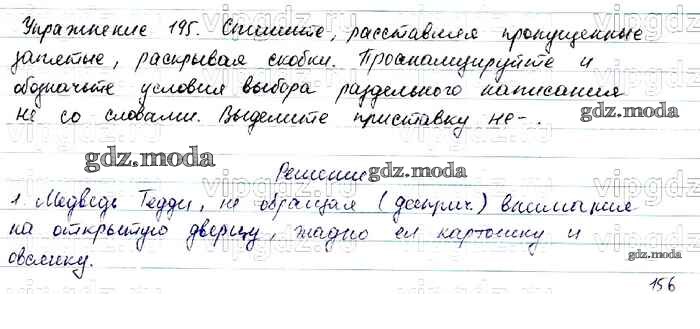 Упражнение 195. Спишите, расставляя пропущенные
запятые, раскрывая скобки. Проанализируйте и
обозначьте условия выбора раздельного написания
не со словами. Выделите приставку не-.
gdz.moda
gdz.moda
Решение
gdz.moda
1. Медведь Тедди, не обращая (дееприч.) внимания
на открытую дверцу, жадно ел картошку и
овсянку.
gdz.moda
156